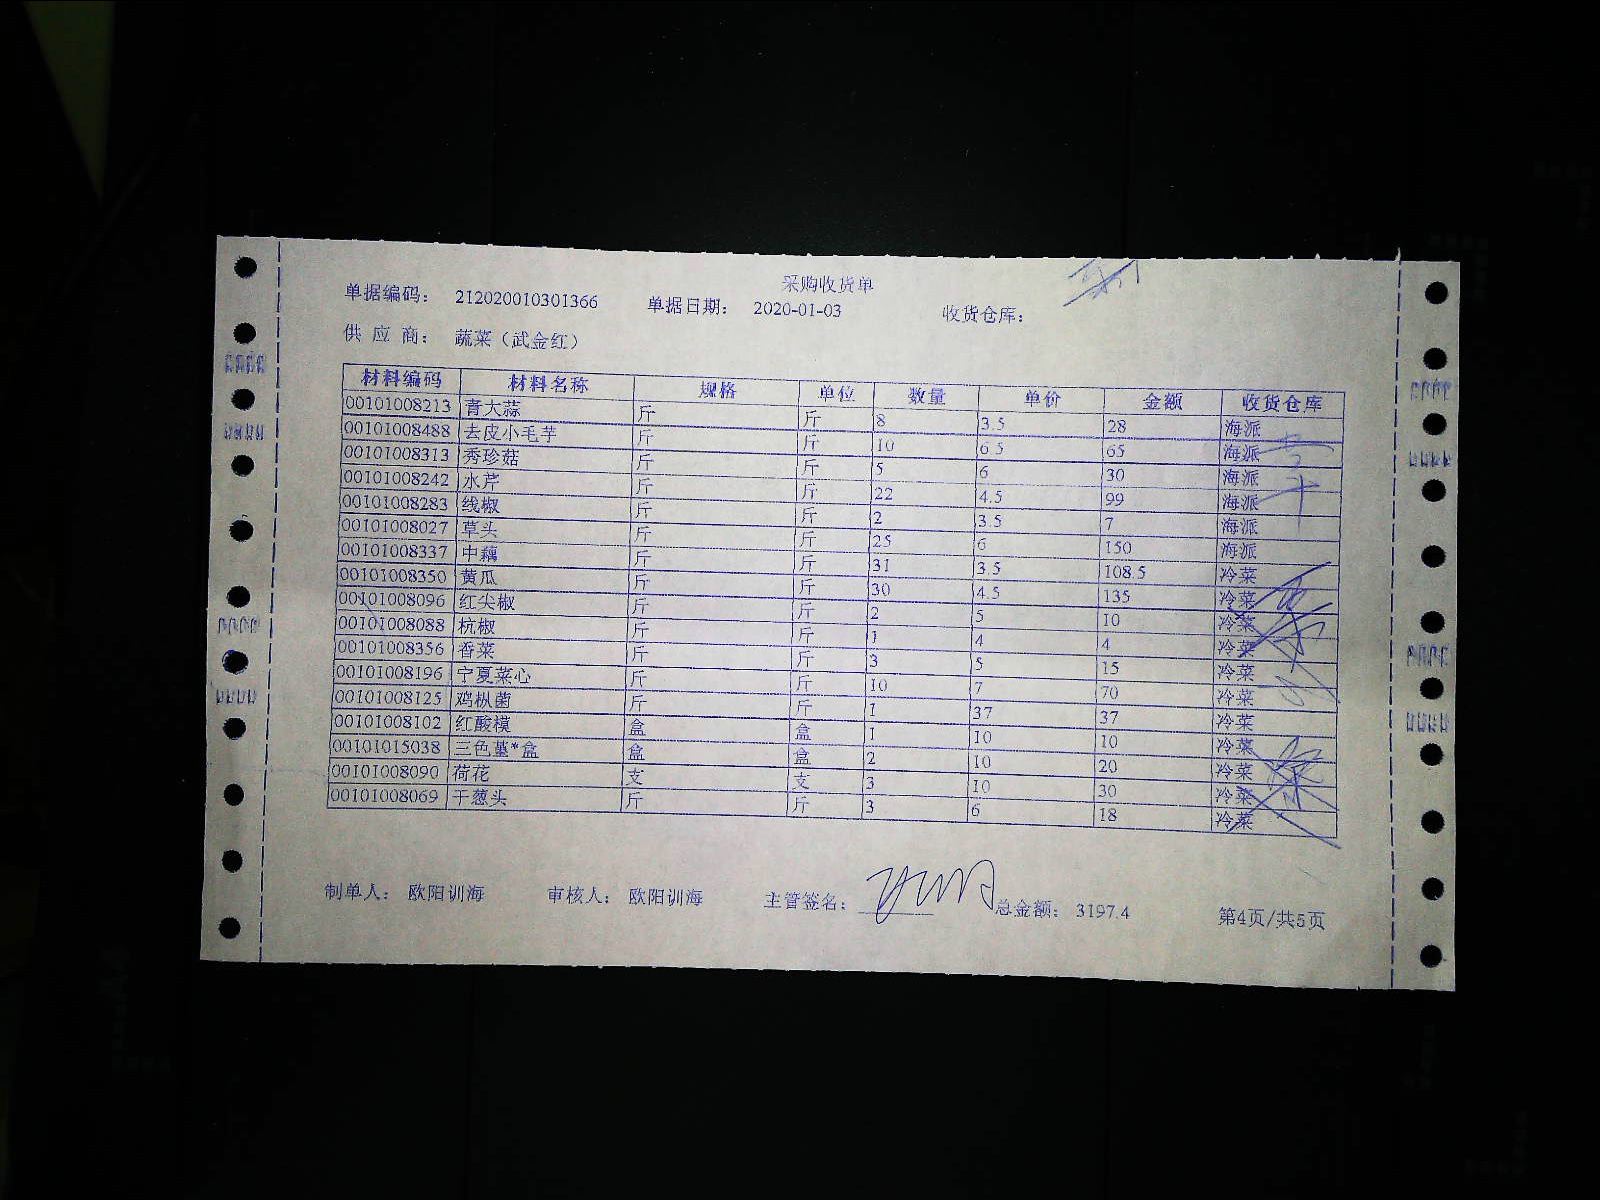 采购收货单
单据编码： 212020010301366 单据日期： 2020-01-03 收货仓库：
供 应 商： 蔬菜（武金红）
材料编码 材料名称 规格 单位 数量 单价 金额 收货仓库
00101008213 青大蒜 斤 斤 8 3.5 28 海派
00101008488 去皮小毛芋 斤 斤 10 6.5 65 海派
00101008313 秀珍菇 斤 斤 5 6 30 海派
00101008242 水芹 斤 斤 22 4.5 99 海派
00101008283 线椒 斤 斤 2 3.5 7 海派
00101008027 草头 斤 斤 25 6 150 海派
00101008337 中藕 斤 斤 31 3.5 108.5 冷菜
00101008350 黄瓜 斤 斤 30 4.5 135 冷菜
00101008096 红尖椒 斤 斤 2 5 10 冷菜
00101008088 杭椒 斤 斤 1 4 4 冷菜
00101008356 香菜 斤 斤 3 5 15 冷菜
00101008196 宁夏菜心 斤 斤 10 7 70 冷菜
00101008125 鸡枞菌 斤 斤 1 37 37 冷菜
00101008102 红酸模 盒 盒 1 10 10 冷菜
00101015038 三色堇*盒 盒 盒 2 10 20 冷菜
00101008090 荷花 支 支 3 10 30 冷菜
00101008069 干葱头 斤 斤 3 6 18 冷菜
制单人： 欧阳训海 审核人： 欧阳训海 主管签名： 总金额： 3197.4 第4页/共5页